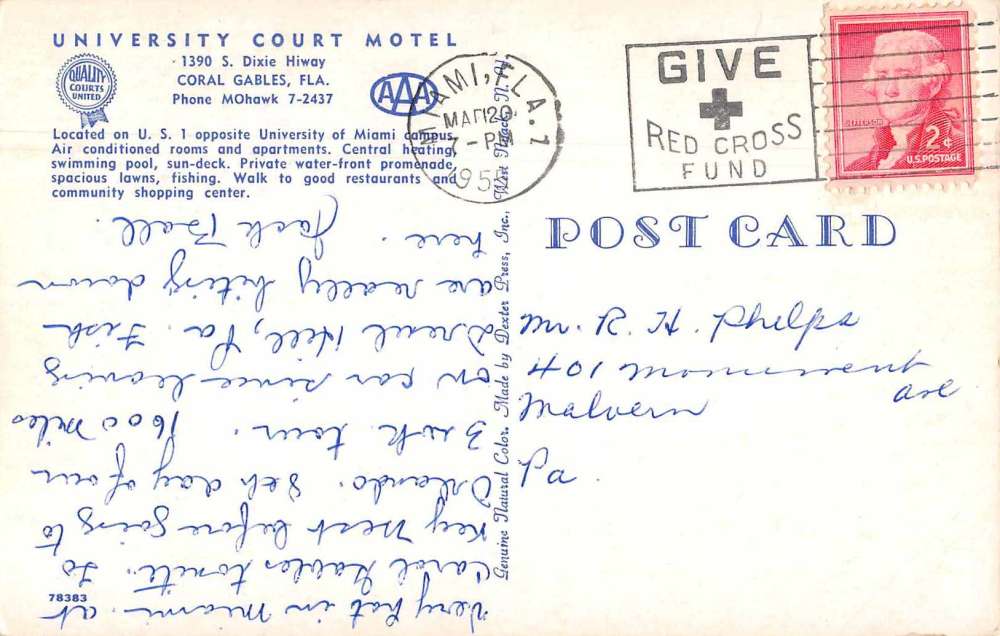 UNIVERSITY COURT MOTEL
1390 S. Dixie Hiway
CORAL GABLES, FLA.
Phone MOhawk 7-2437
QUALITY
COURTS
UNITED
AAA
Located on U. S. 1 opposite University of Miami campus.
Air conditioned rooms and apartments. Central heating,
swimming pool, sun-deck. Private water-front promenade,
spacious lawns, fishing. Walk to good restaurants and
community shopping center.
MIAMI, FLA. 1
7-PM
195
GIVE
RED CROSS
FUND
JEFFERSON
2¢
U.S. POSTAGE
POST CARD
Genuine Natural Color, Made by Dexter Press, Inc., West Nyack, N. Y.
Very hot in Miami. at
Carol Gables tonite. To
Key West before going to
Orlando. 8th day of our
3 wk tour. 1600 miles
on car since leaving
Drexel Hill, Pa. Fish
are really biting down
here. Jack Ball.
Mr. R. H. Phelps
401 Monument
Ave
Malvern
Pa.
78383